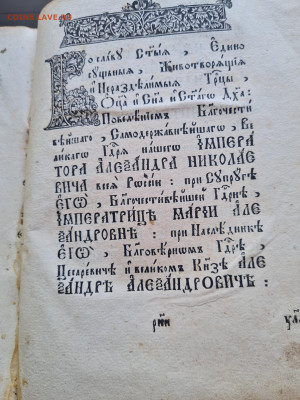 Во славу Ст҃ыѧ, Єдино
сꙋщныѧ, Животворѧщїѧ
и҆ Нераздѣлимыѧ Трⷪ҇цы
Ѻ҆ц҃а̀ и҆ Сн҃а и҆ Ст҃а́гѡ Дх҃а:
Повелѣнїемъ Благочести
вѣйшагѡ, Самодержавнѣйшагѡ, Ве
ликагѡ Гдⷭ҇рѧ нашегѡ І҆мпера
тора Але́ѯандра Николае
вича всеѧ̀ Рѡссі́и: при Сꙋпрꙋгѣ
Є҆гѡ̀, Благочестивѣйшей Гдⷭ҇рнѣ,
І҆мператрицѣ Марі́и Але
ѯандровнѣ: при Наслѣдникѣ
Є҆гѡ̀, Благовѣрномъ Гдⷭ҇рѣ,
Цесаревичѣ и҆ великомъ Кнѧ҃зѣ Але
ѯандрѣ Але́ѯандровичѣ: